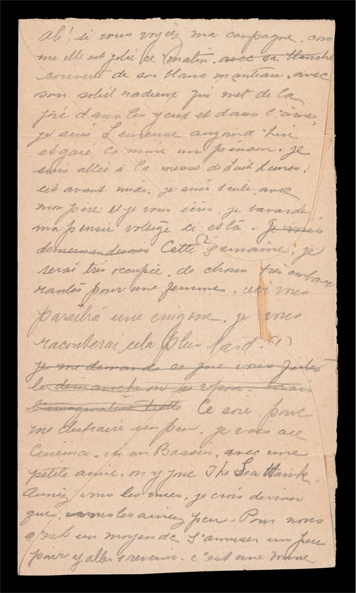 Ah! si vous voyiez ma campagne, com
me elle est jolie ce matin, avec sa blanche
couvert de son blanc manteau, avec
son soleil radieux qui met de la
joie dans les yeux et dans l'âme,
je suis heureuse aujourd'hui
et gaie comme un pinson. Je
suis allée à la messe de huit heures.
cet avant midi, je suis seule avec
mon père et je vous écris, je bavarde
ma pensée voltige ci et là. Je vous
Cette semaine, je
serai très occupée, de choses très embar
rantes pour une femme, ceci vous
paraîtra une énigme, je vous
raconterai cela plus tard. (1)
je me demande ce que vous faites
le dimanche
Ce soir, pour
me distraire un peu, je vais au
Cinéma, avec une
petite amie, on y joue The Sea Hawk.
Aimez-vous les vues, je crois deviner
que, vous les aimez peu. Pour nous
c'est un moyen de s'amuser un peu
pour y aller et revenir, c'est une bonne